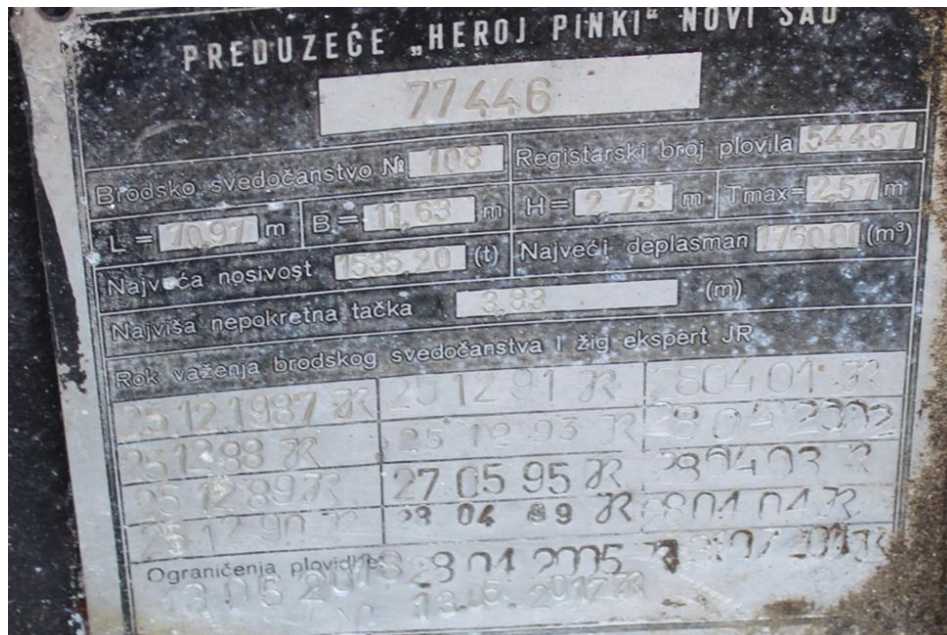 PREDUZEĆE „HEROJ PINKI“ NOVI SAD
77446
Brodsko svedočanstvo № 108 Registarski broj plovila 54457
L = 70,97 m B = 11,63 m H = 2,73 m Tmax= 2,57 m
Najveća nosivost 1535,20 (t) Najveći deplasman 1760,01 (m³)
Najviša nepokretna tačka 3,83 (m)
Rok važenja brodskog svedočanstva i žig ekspert JR
25.12.1987 JR 25 12 91 JR 28 04 01 JR
25 12 88 JR 25 12 93 JR 28 04 2002
25 12 89 JR 27 05 95 JR 28 04 03 JR
25 12 90 JR 28 04 99 JR 28 04 04 JR
Ograničenja plovidbe 28 04 2005 JR
13.05.2017 JR